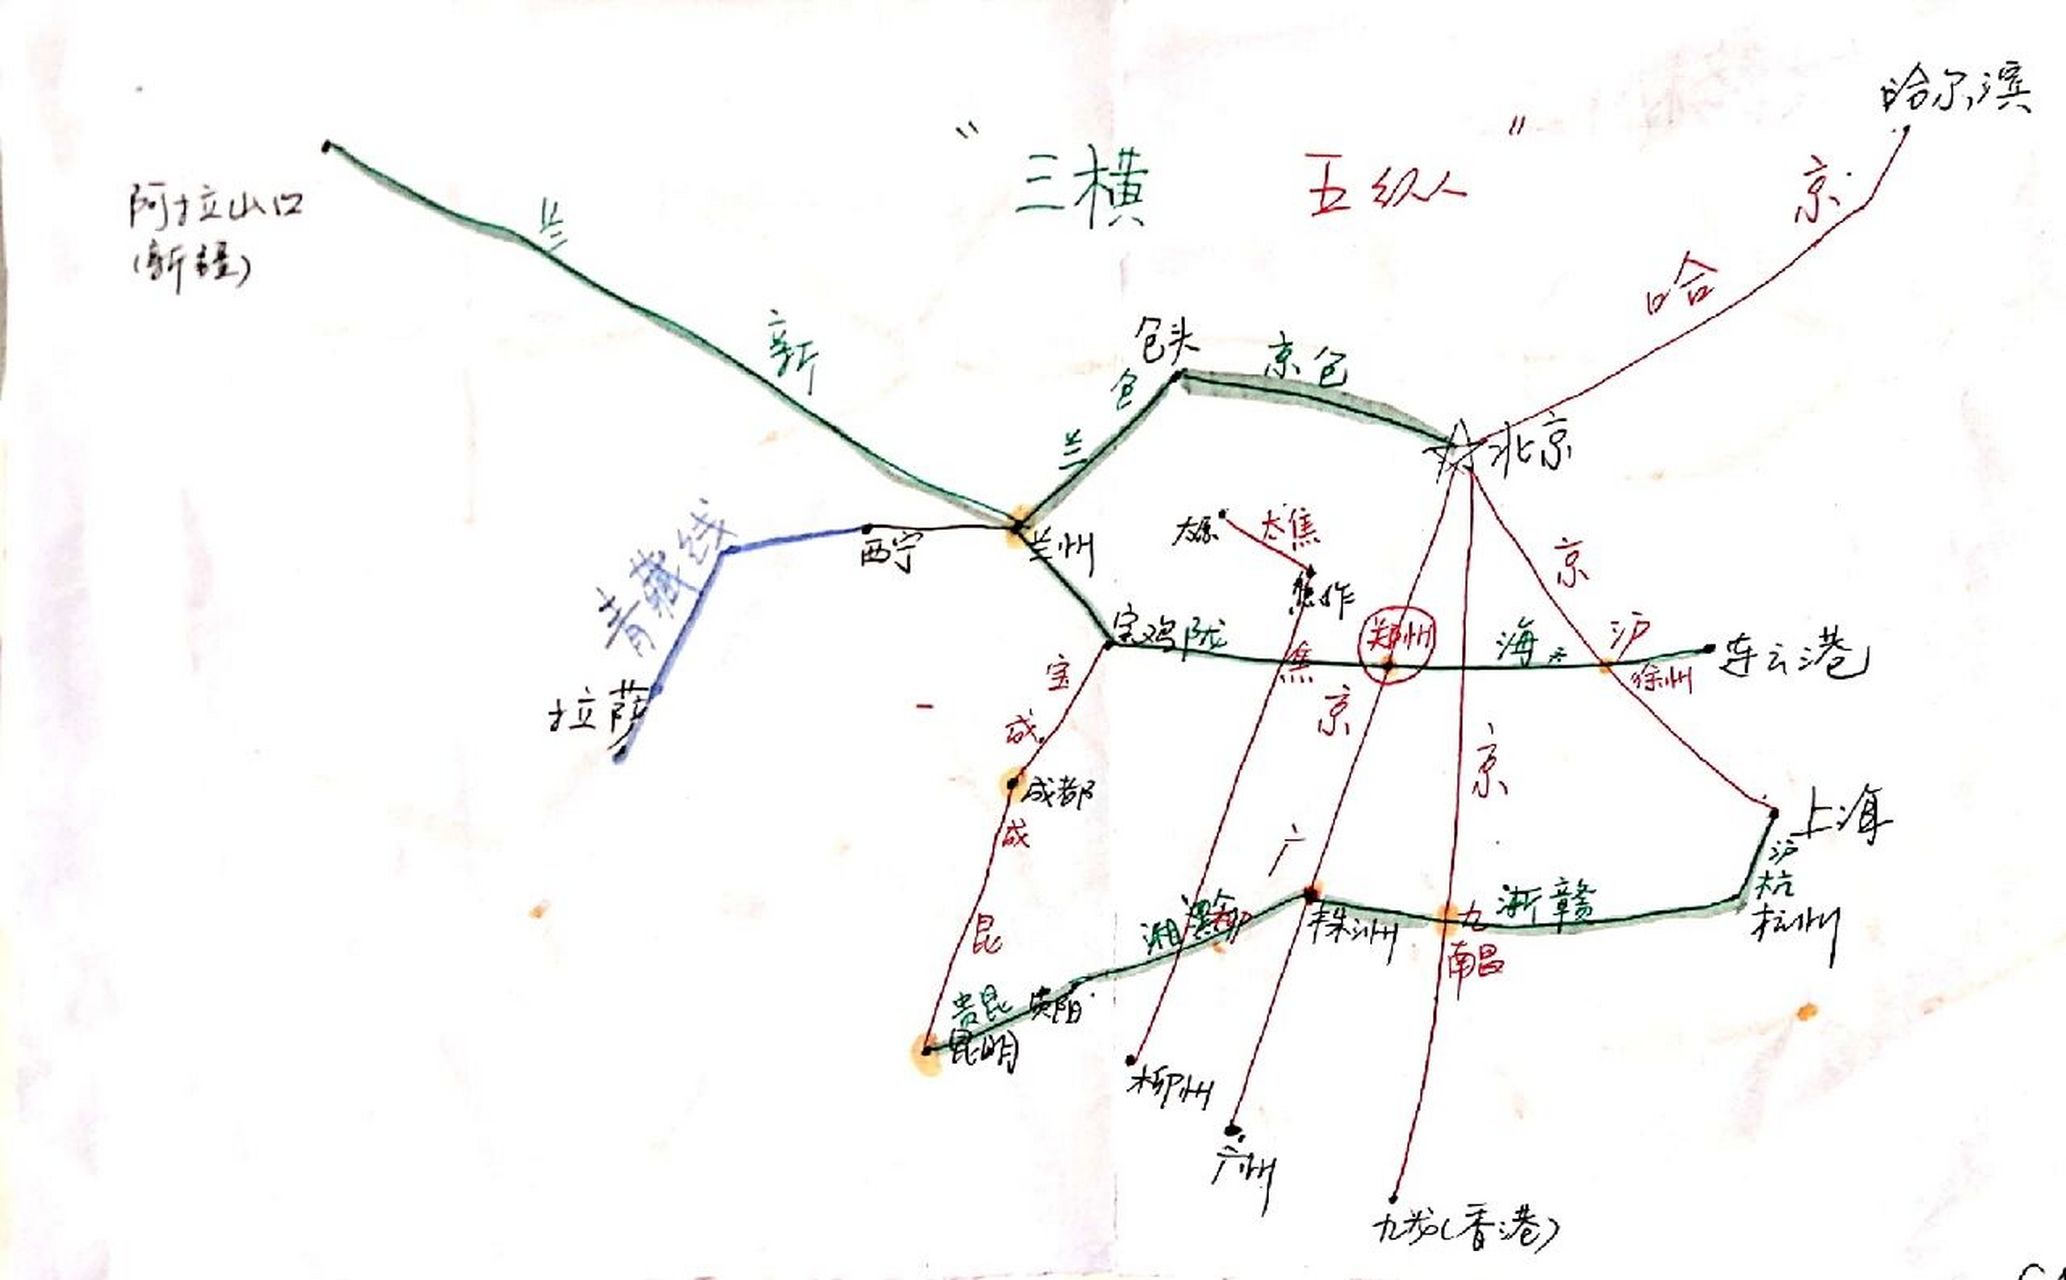 哈尔滨
"三横 五纵"
京
哈
阿拉山口
(新疆)
兰
新
包头
京包
包
兰
北京
青藏线
西宁
兰州
太原
太焦
焦作
京
宝鸡
陇
郑州
海
沪
连云港
徐州
拉萨
宝
成
焦
京
京
成都
成
广
上海
沪
杭
杭州
昆
湘黔
株洲
九
浙赣
南昌
贵昆
贵阳
昆明
柳州
广州
九龙(香港)